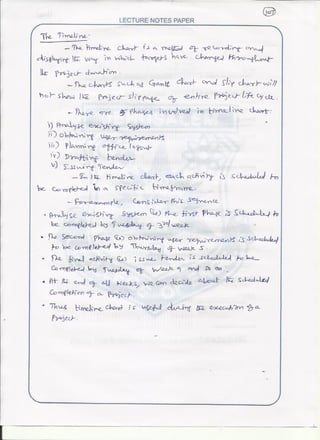 LECTURE NOTES PAPER
The Timeline:
- The timeline chart is a method of recording and
displaying the way in which targets have changed throughout
the project duration
- The charts such as Gantt chart and slip chart will
not show the project slippage of entire project life cycle.
- There are 5 phases involved in timeline chart:
i) Analyse existing system
ii) obtaining user requirements
iii) Planning office layout
iv) Drafting tender
v) Issuing Tender
- In the timeline chart, each activity is scheduled to
be completed in a specific timeframe.
- For example, Consider this sequence
• Analyse existing system (ie) the first phase is scheduled to
be completed by Tuesday of 3rd week
• The second phase (ie) obtaining user requirements is scheduled
to be completed by Thursday of week 5
• The final activity (ie) issue tender is scheduled to be
completed by Tuesday of week 9 and so on.
• At the end of all weeks, we can decide about the scheduled
completion of a project.
• Thus timeline chart is useful during the execution of a
project.